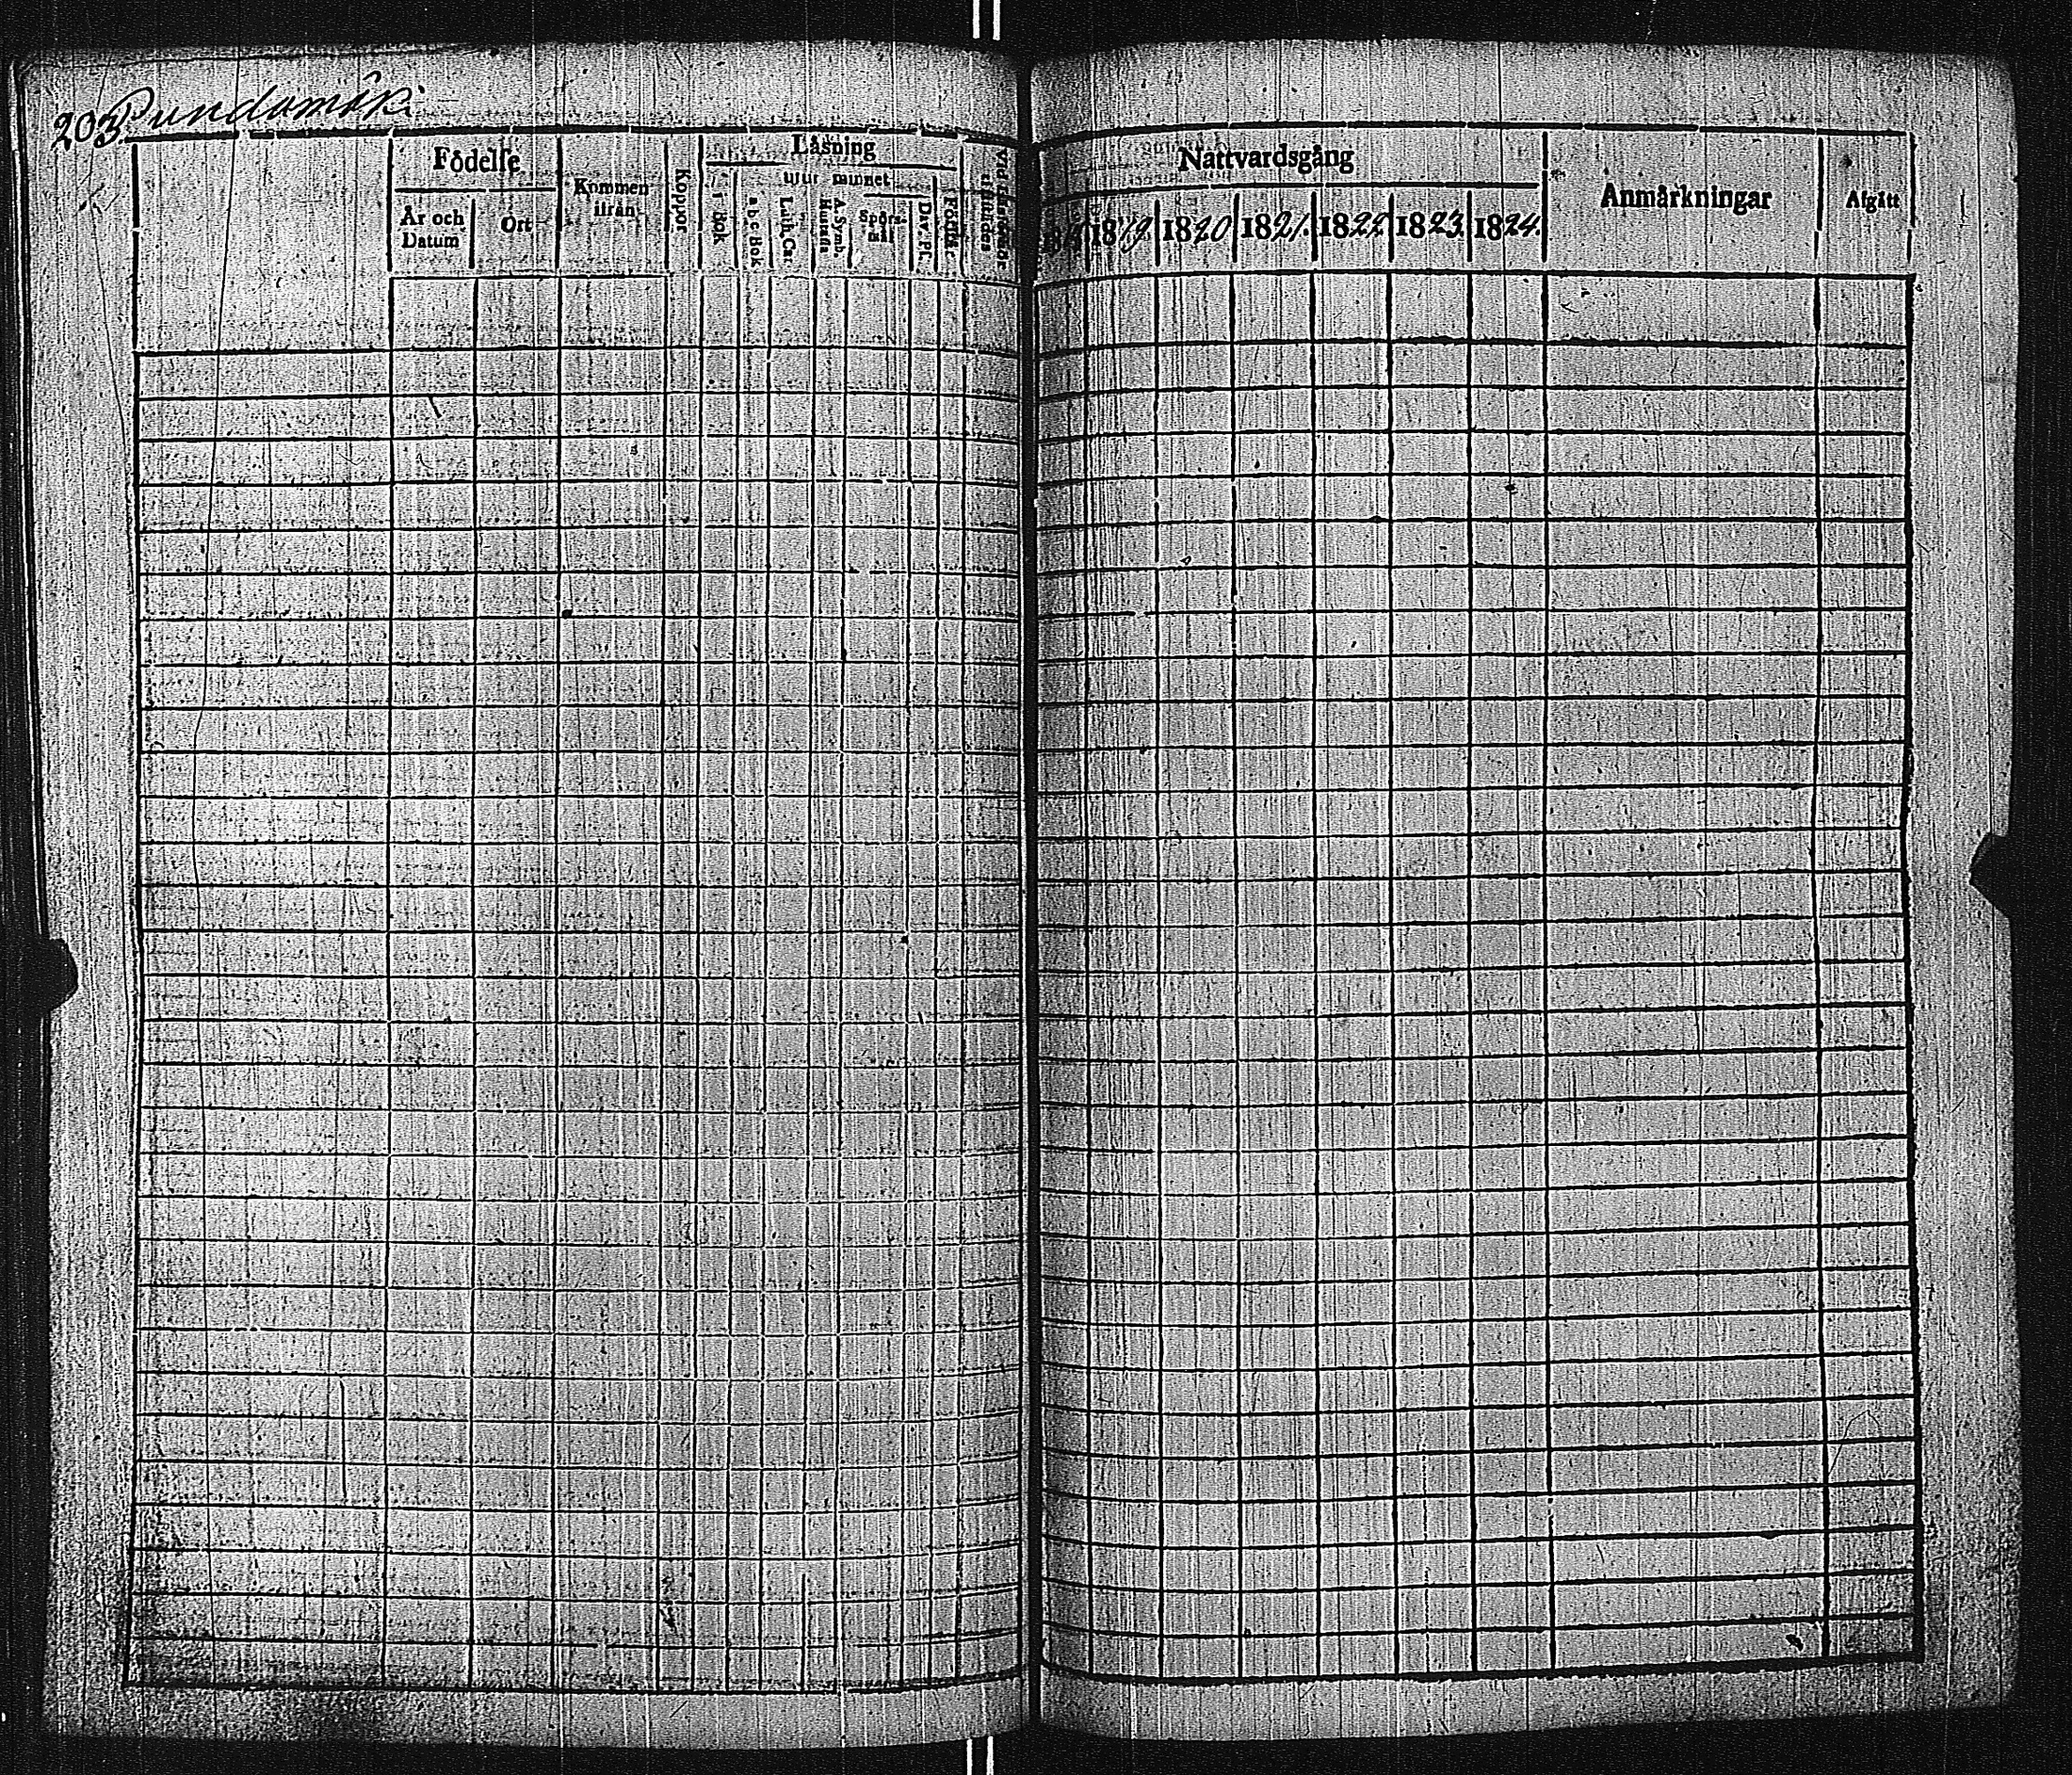 203. Pundamäki
Födelse
År och Datum
Ort
Kommen ifrån
Koppor
Läsning
Bok
utur minnet
a b c Bok
Luth. Cat.
A. Symb.
Hustafla
Spörsmål
Dav. Ps.
Nattvardsgång
1819.
1820
1821.
1822
1823.
1824.
Anmärkningar
Afgått